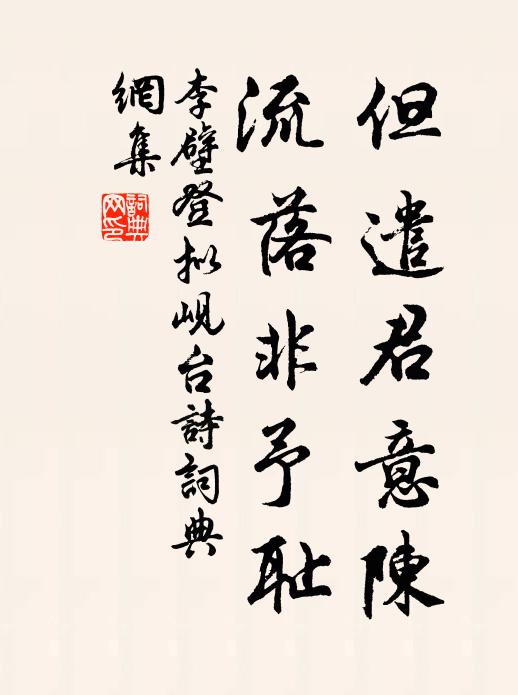 但遣君意陳
流落非予耻
李壁登拟峴台詩詞典
網集
詞典
网印